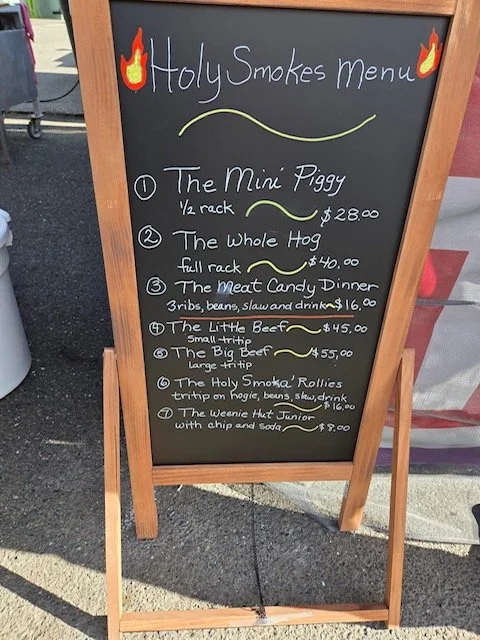 Holy Smokes Menu
① The Mini Piggy
1/2 rack $28.00
② The Whole Hog
full rack $40.00
③ The Meat Candy Dinner
3 ribs, beans, slaw and drink $16.00
④ The Little Beef $45.00
small tritip
⑤ The Big Beef $55.00
Large tritip
⑥ The Holy Smoka' Rollies
tritip on hogie, beans, slaw, drink
$16.00
⑦ The Weenie Hut Junior
with chip and soda $8.00